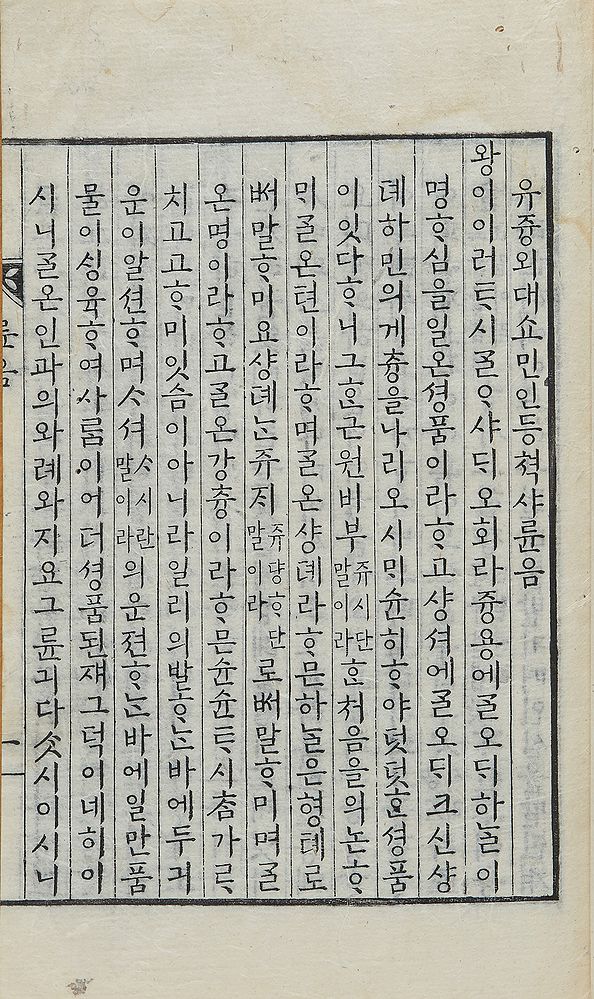 유즁외대쇼민인등쳑샤륜음
왕이이러ᄐᆞ시ᄀᆞᆯᄋᆞ샤ᄃᆡ오회라즁용에ᄀᆞᆯ오ᄃᆡ하ᄂᆞᆯ이
명ᄒᆞ심을일온셩품이라ᄒᆞ고샹셔에ᄀᆞᆯ오ᄃᆡ크신샹
뎨하민의게츙을나리오시ᄆᆡ슌히ᄒᆞ야덧덧ᄒᆞᆫ셩품
이잇다ᄒᆞ니그ᄒᆞᆫ근원비부쥬시단말이라ᄒᆞᆫ처음을의논ᄒᆞ
ᄆᆡᄀᆞᆯ온텬이라ᄒᆞ며ᄀᆞᆯ온샹뎨라ᄒᆞ믄하ᄂᆞᆯ은형톄로
ᄡᅥ말ᄒᆞ미요샹뎨ᄂᆞᆫ쥬ᄌᆡ쥬댱ᄒᆞ단말이라로ᄡᅥ말ᄒᆞ미며ᄀᆞᆯ
온명이라ᄒᆞ고ᄀᆞᆯ온강츙이라ᄒᆞ믄슌슌ᄐᆞ시ᄎᆞᆷ가ᄅᆞ
치고고ᄒᆞ미잇슴이아니라일리의발ᄒᆞᄂᆞᆫ바에두긔
운이알션ᄒᆞ며ᄉᆞ셔ᄉᆞ시란말이라의운젼ᄒᆞᄂᆞᆫ바에일만품
물이싱육ᄒᆞ여사ᄅᆞᆷ이어더셩품된재그덕이네히이
시니ᄀᆞᆯ온인과의와례와지요그륜긔다ᄉᆞᆺ시이시니
륜음
一